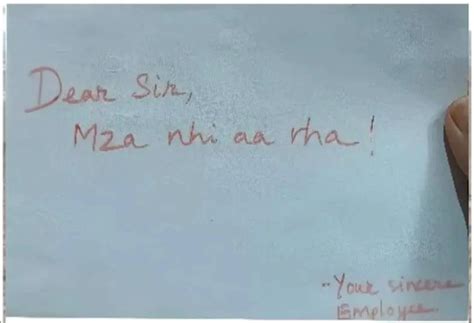 Dear Sir,
Mza nhi aa rha!
-Your sincere
Employee